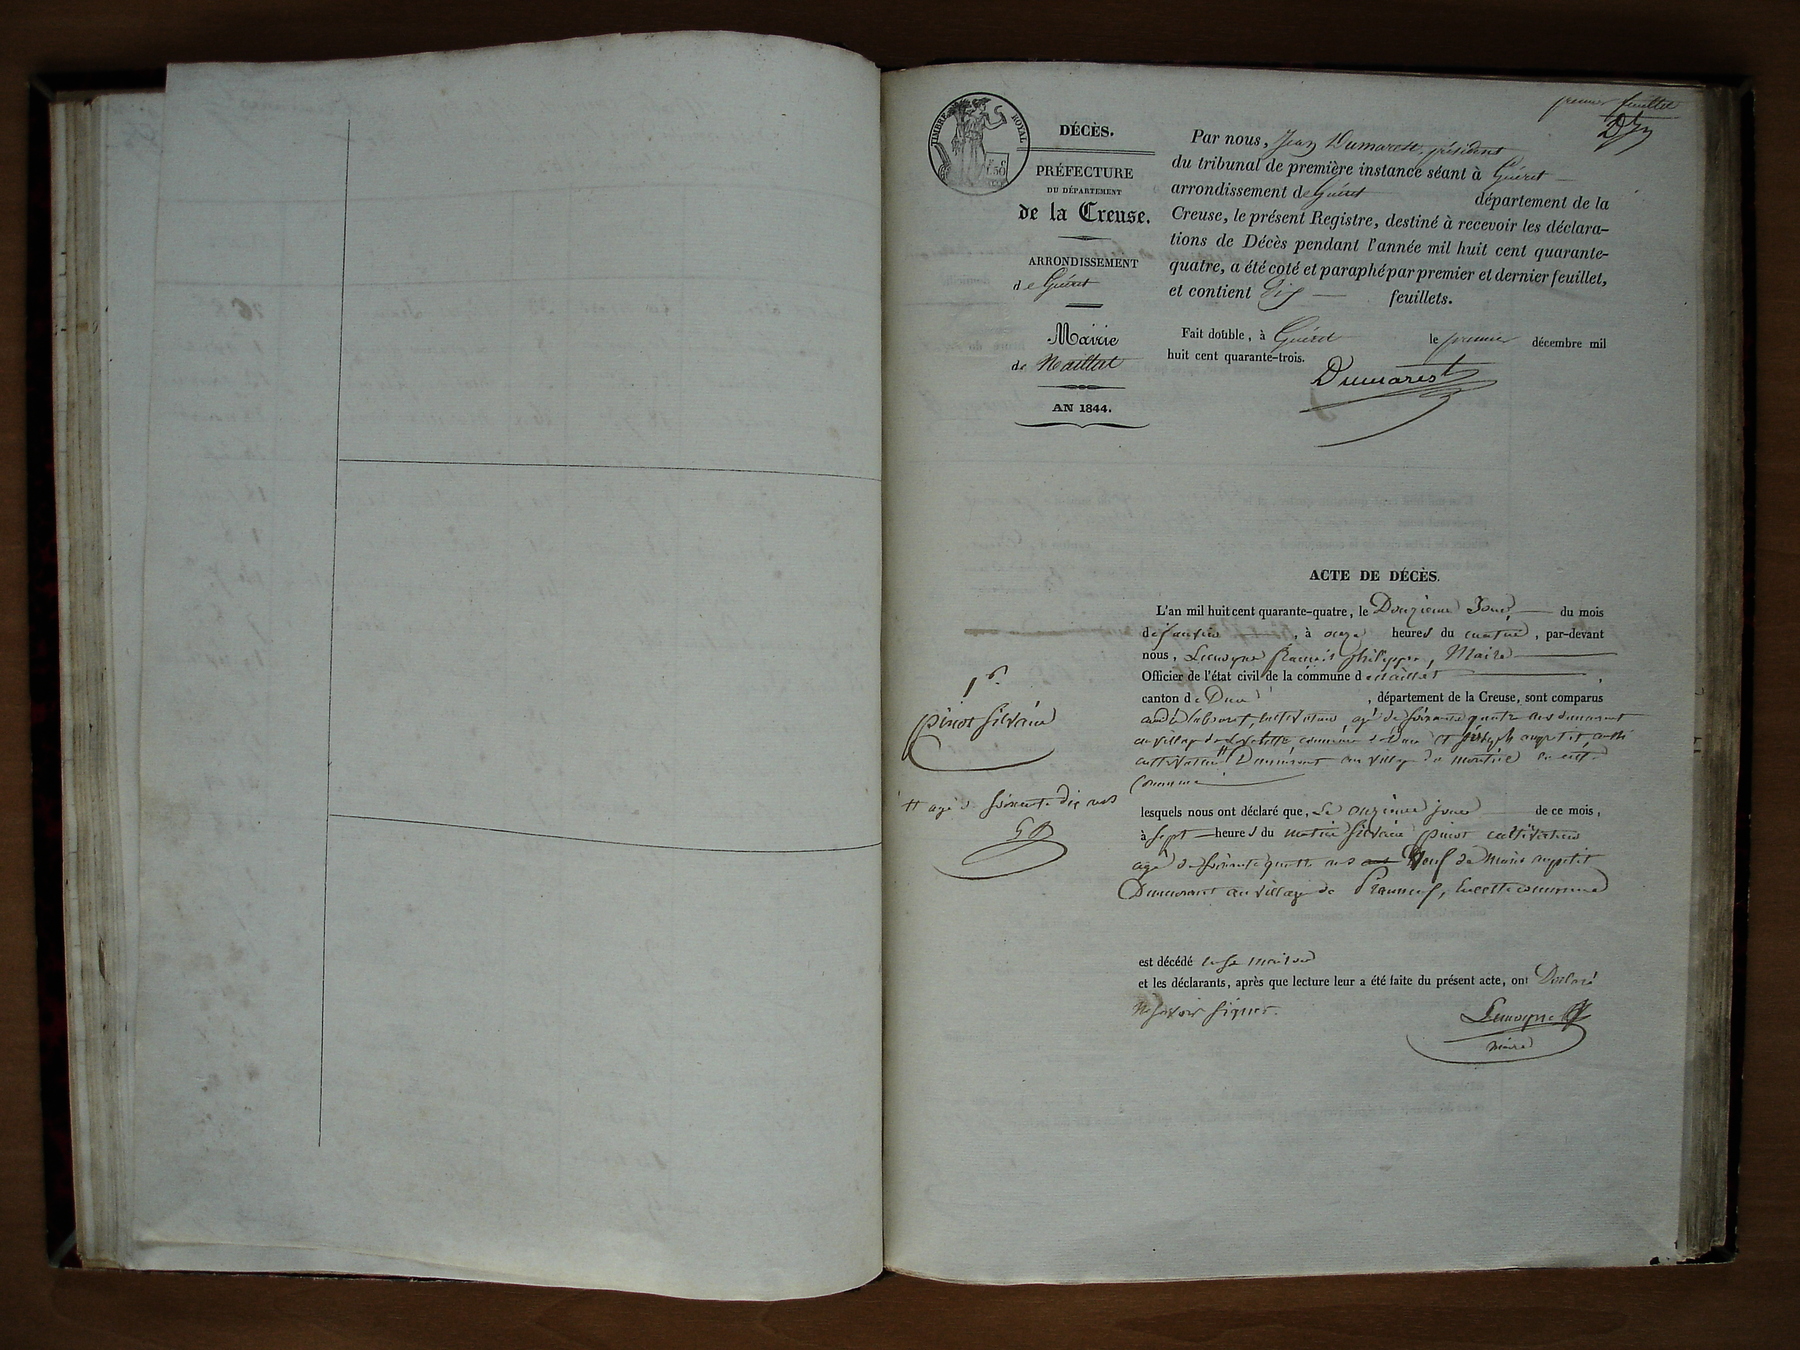 premier feuillet
TIMBRE ROYAL
DÉCÈS.
PRÉFECTURE
DU DÉPARTEMENT
de la Creuse.
ARRONDISSEMENT
de Guéret
Mairie
de Naillat
AN 1844.
Par nous, Jean Dumarest, président
du tribunal de première instance séant à Guéret
arrondissement de Guéret département de la
Creuse, le présent Registre, destiné à recevoir les déclara-
tions de Décès pendant l'année mil huit cent quarante-
quatre, a été coté et paraphé par premier et dernier feuillet,
et contient dix feuillets.
Fait double, à Guéret le premier décembre mil
huit cent quarante-trois.
Dumarest
ACTE DE DÉCÈS.
L'an mil huit cent quarante-quatre, le Douzieme Jour du mois
de janvier, à onze heures du matin, par-devant
nous, Lemoyne françois philippe, Maire
Officier de l'état civil de la commune de naillat,
canton de Dun, département de la Creuse, sont comparus
cultivateur, agé de soixante quatre ans demeurant
au village de commune de Dun et joseph aupetit aussi
cultivateur # Demeurant au village du en cette
Commune
1er
pinot Silvain
# agé de soixante dix ans
lesquels nous ont déclaré que, Le onzieme jour de ce mois,
à sept heures du matin Silvain pinot cultivateur
agé de soixante quatre ans Veuf de Marie aupetit
Demeurant au village de en cette commune
est décédé en sa maison
et les déclarants, après que lecture leur a été faite du présent acte, ont Déclaré
Ne savoir signer.
Lemoyne
maire